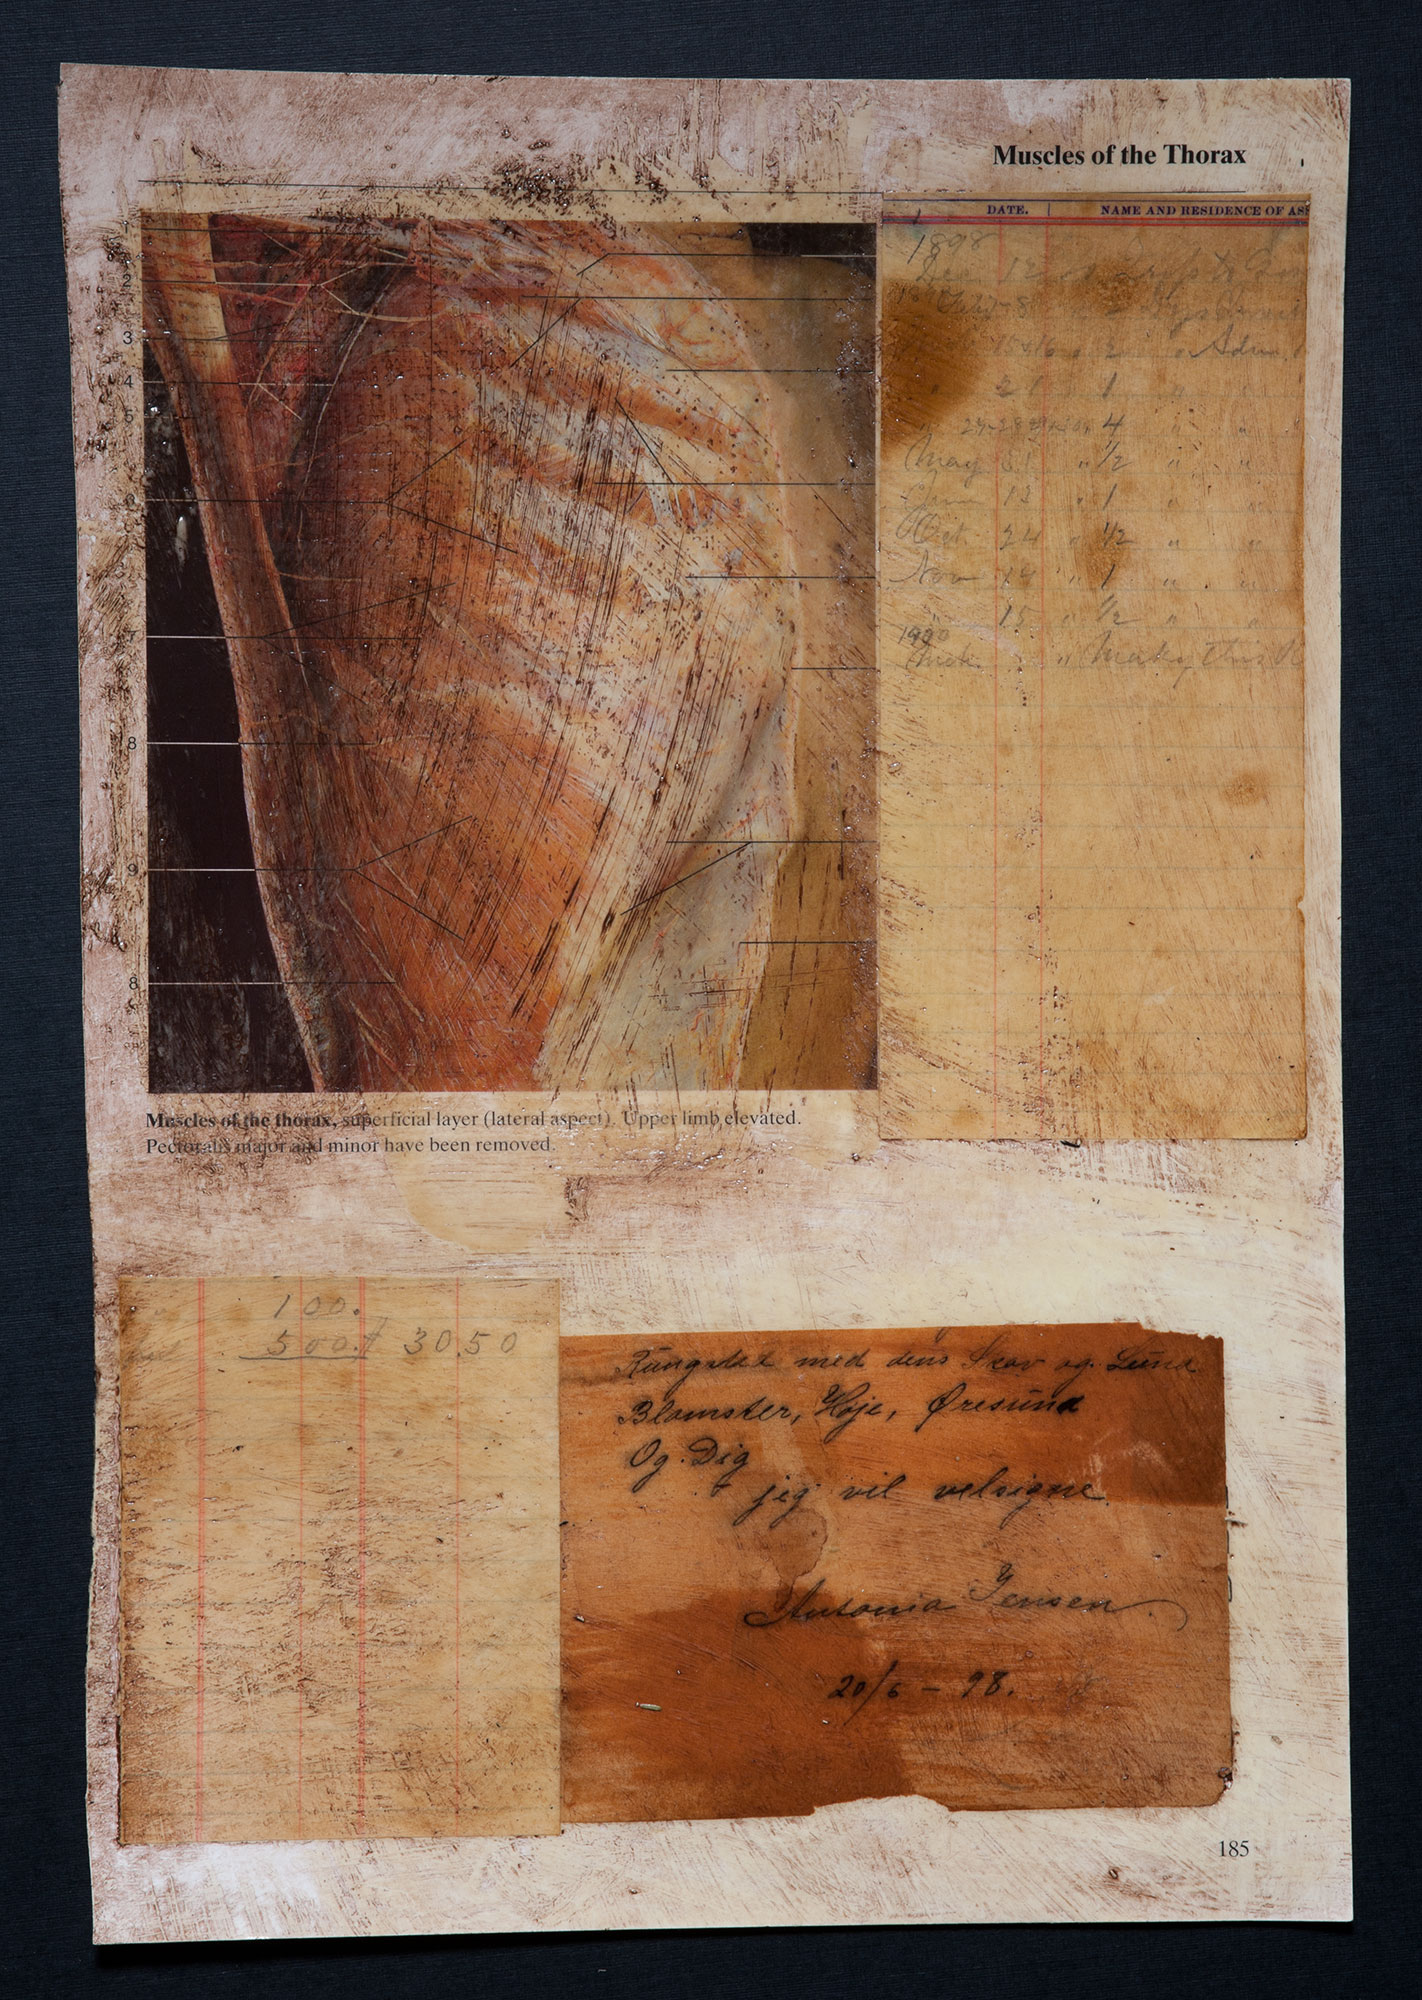 Muscles of the Thorax
DATE. NAME AND RESIDENCE OF ASS
1898
Dec 12
15&16 " 2 " " Adm.
" 21 1 " "
4 " "
May 31 " 1/2 " "
12 " 1 " "
Oct 24 " 1/2 " "
Nov 14 " 1 " "
15 " 1/2 " "
1900
" Making this
3
4
5
6
7
8
9
8
Muscles of the thorax, superficial layer (lateral aspect). Upper limb elevated.
Pectoralis major and minor have been removed.
100.
500. 30.50
Rungsted med dens Skov og Lund
Blomster, Høje, Øresund
Og Dig
jeg vil velsigne.
Antonia Jensen.
20/6 - 98.
185